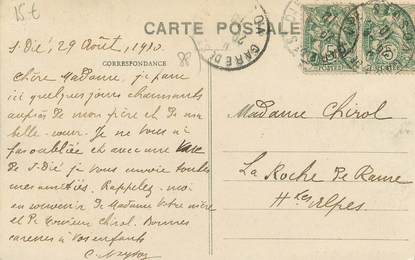 15€
CARTE POSTALE
CORRESPONDANCE
88
GARE DE
St Dié, 29 Août, 1910.
Chère Madame, je passe
ici quelques jours charmants
auprès de mon frère et de ma
belle-sœur. Je ne vous ai
pas oubliée et avec une vue
de St-Dié je vous envoie toutes
mes amitiés. Rappelez-moi
au souvenir de Madame votre mère
et de Monsieur Chirol. Bonnes
caresses à vos enfants
Madame Chirol
La Roche de Rame
Htes Alpes